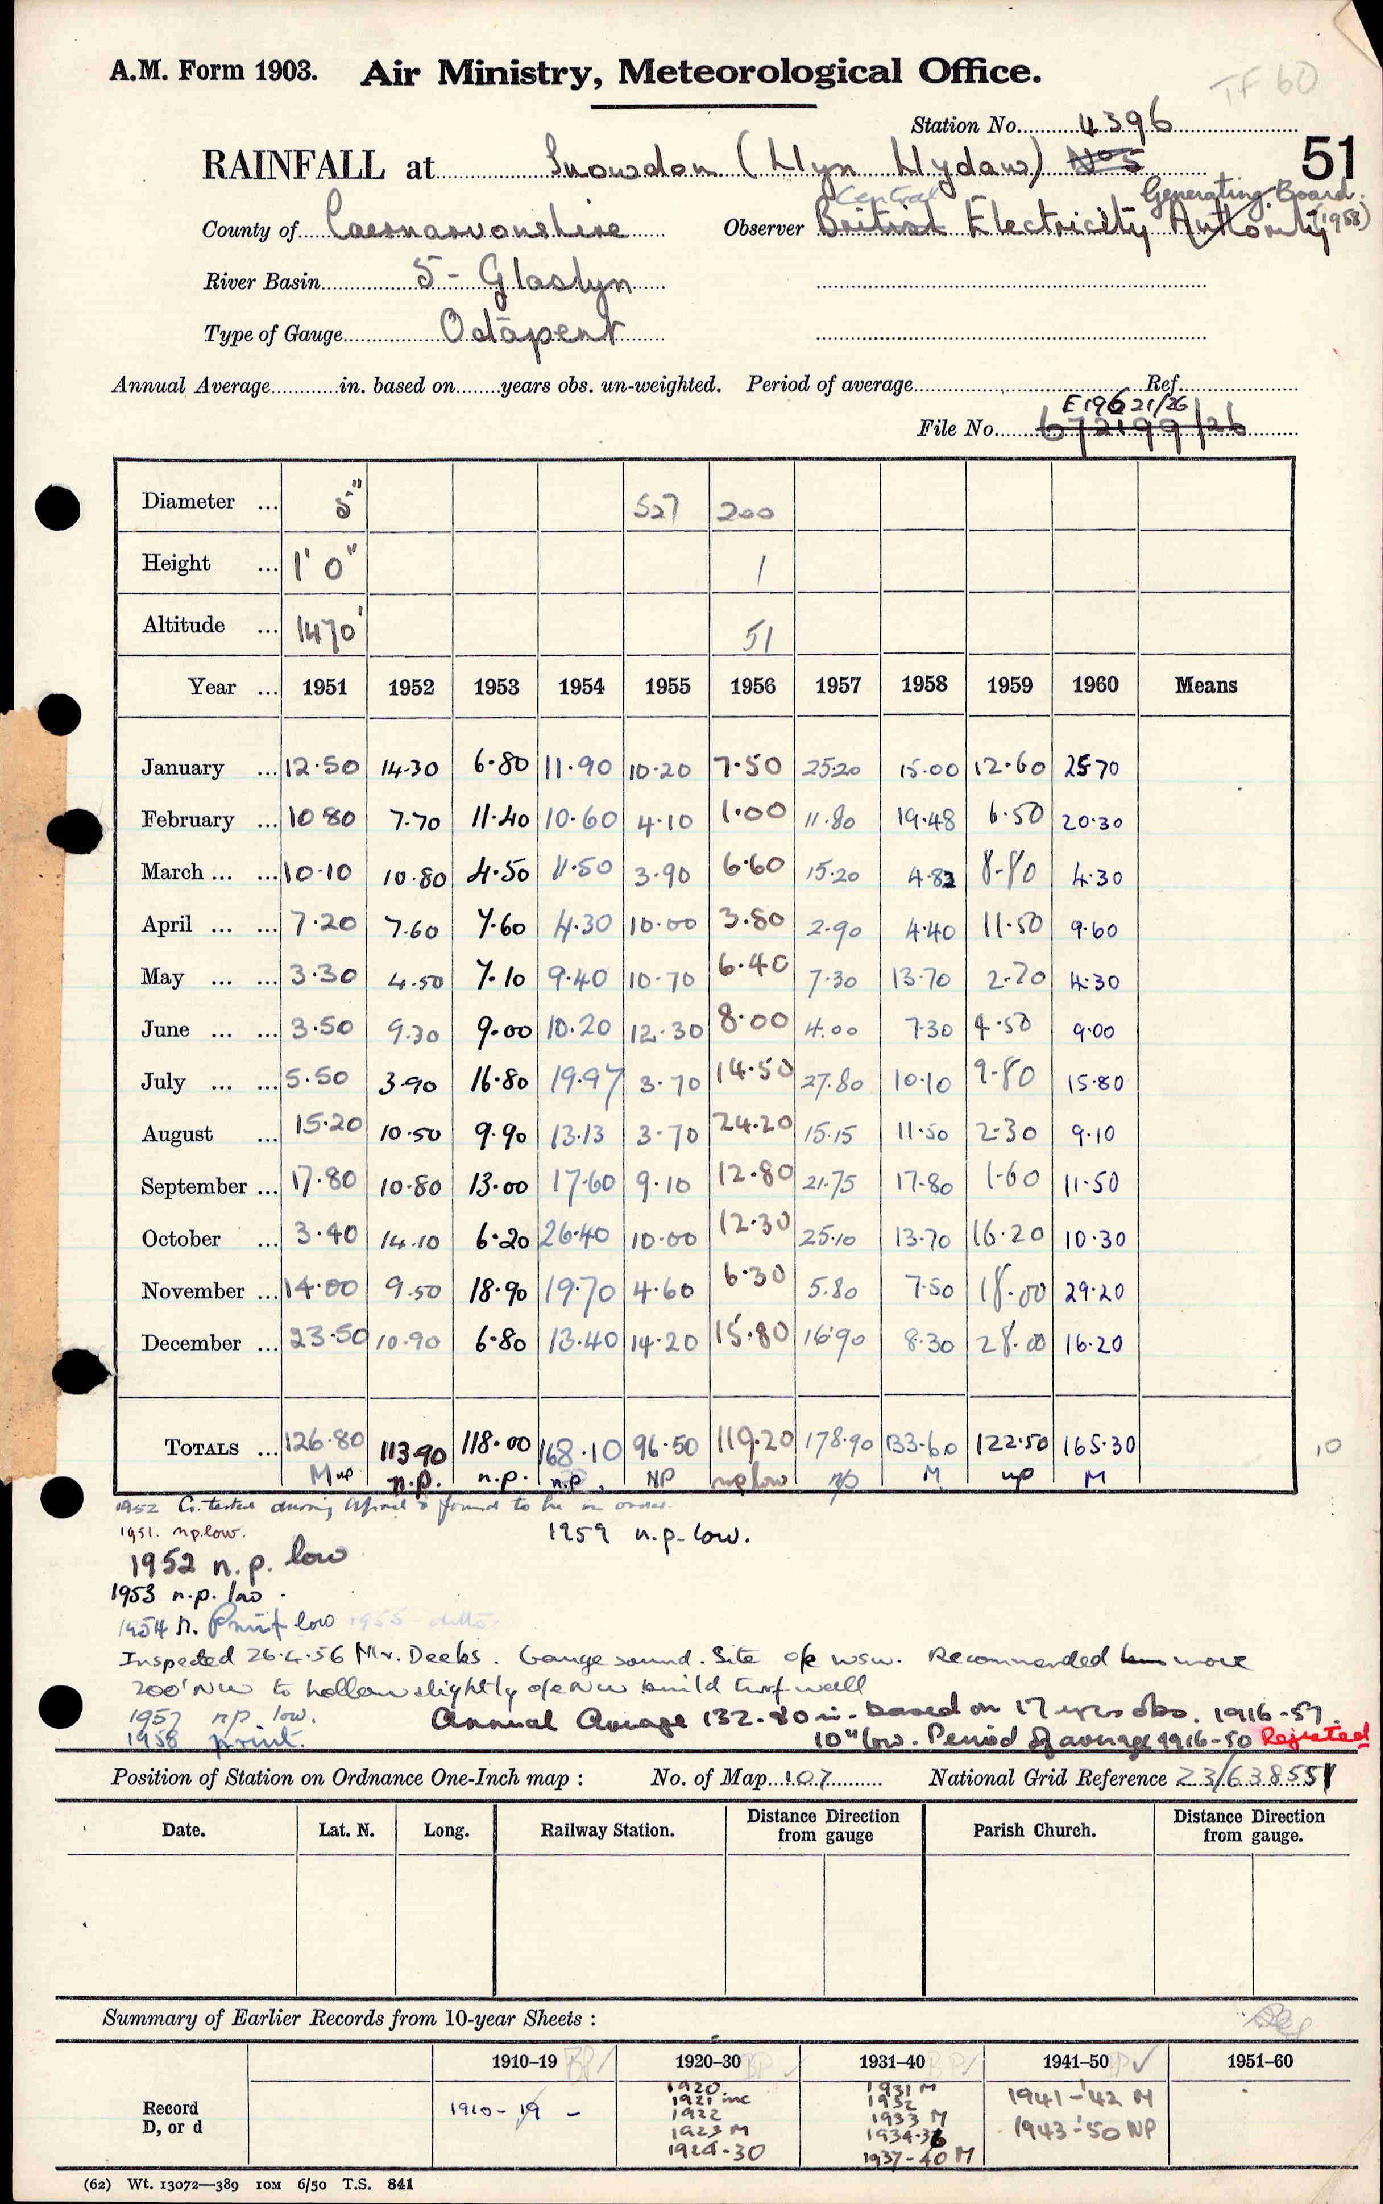 A.M. Form 1903. Air Ministry, Meteorological Office.
TF 60
Station No. 4396
RAINFALL at Snowdon (Llyn Llydaw) No 5
51
Central Generating Board.
County of Caernarvonshire Observer British Electricity Authority (1958)
River Basin 5 - Glaslyn
Type of Gauge Octapent
Annual Average in. based on years obs. un-weighted. Period of average Ref.
E19621/26
File No. 672199/26
Diameter ... 5" 527 200
Height ... 1' 0" 1
Altitude ... 1470' 51
Year ... 1951 1952 1953 1954 1955 1956 1957 1958 1959 1960 Means
January ... 12.50 14.30 6.80 11.90 10.20 7.50 25.20 15.00 12.60 25.70
February ... 10.80 7.70 11.40 10.60 4.10 1.00 11.80 19.48 6.50 20.30
March ... ... 10.10 10.80 4.50 11.50 3.90 6.60 15.20 4.82 8.80 4.30
April ... ... 7.20 7.60 7.60 4.30 10.00 3.80 2.90 4.40 11.50 9.60
May ... ... 3.30 4.50 7.10 9.40 10.70 6.40 7.30 13.70 2.70 4.30
June ... ... 3.50 9.30 9.00 10.20 12.30 8.00 4.00 7.30 4.50 9.00
July ... ... 5.50 3.90 16.80 19.97 3.70 14.50 27.80 10.10 9.80 15.80
August ... 15.20 10.50 9.90 13.13 3.70 24.20 15.15 11.50 2.30 9.10
September ... 17.80 10.80 13.00 17.60 9.10 12.80 21.75 17.80 1.60 11.50
October ... 3.40 14.10 6.20 26.40 10.00 12.30 25.10 13.70 16.20 10.30
November ... 14.00 9.50 18.90 19.70 4.60 6.30 5.80 7.50 18.00 29.20
December ... 23.50 10.90 6.80 13.40 14.20 15.80 16.90 8.30 28.00 16.20
TOTALS ... 126.80 113.90 118.00 168.10 96.50 119.20 178.90 133.60 122.50 165.30 10
M np n.p. n.p. n.p. NP np low np M np M
1952 G. tested during April & found to be in order.
1951. np low. 1959 n.p. low.
1952 n.p. low
1953 n.p. low.
1954 n. Print low 1955 ditto
Inspected 26.4.56 Mr. Deeks. Gauge sound. Site o/e WSW. Recommended move
200' NW to hollow slightly o/e NW build turf wall
1957 np low. Annual Average 132.80 in. based on 17 years obs. 1916-57.
1958 print. 10" low. Period of average 1916-50 Rejected
Position of Station on Ordnance One-Inch map : No. of Map 107 National Grid Reference 23/638551
Date. Lat. N. Long. Railway Station. Distance Direction from gauge Parish Church. Distance Direction from gauge.
Summary of Earlier Records from 10-year Sheets :
1910-19 1920-30 1931-40 1941-50 1951-60
Record D, or d
1910-19 -
1920
1921 inc
1922
1923 M
1924-30
1931 M
1932
1933 M
1934-36
1937-40 M
1941-'42 M
1943-'50 NP
(62) Wt. 13072—389 10M 6/50 T.S. 841